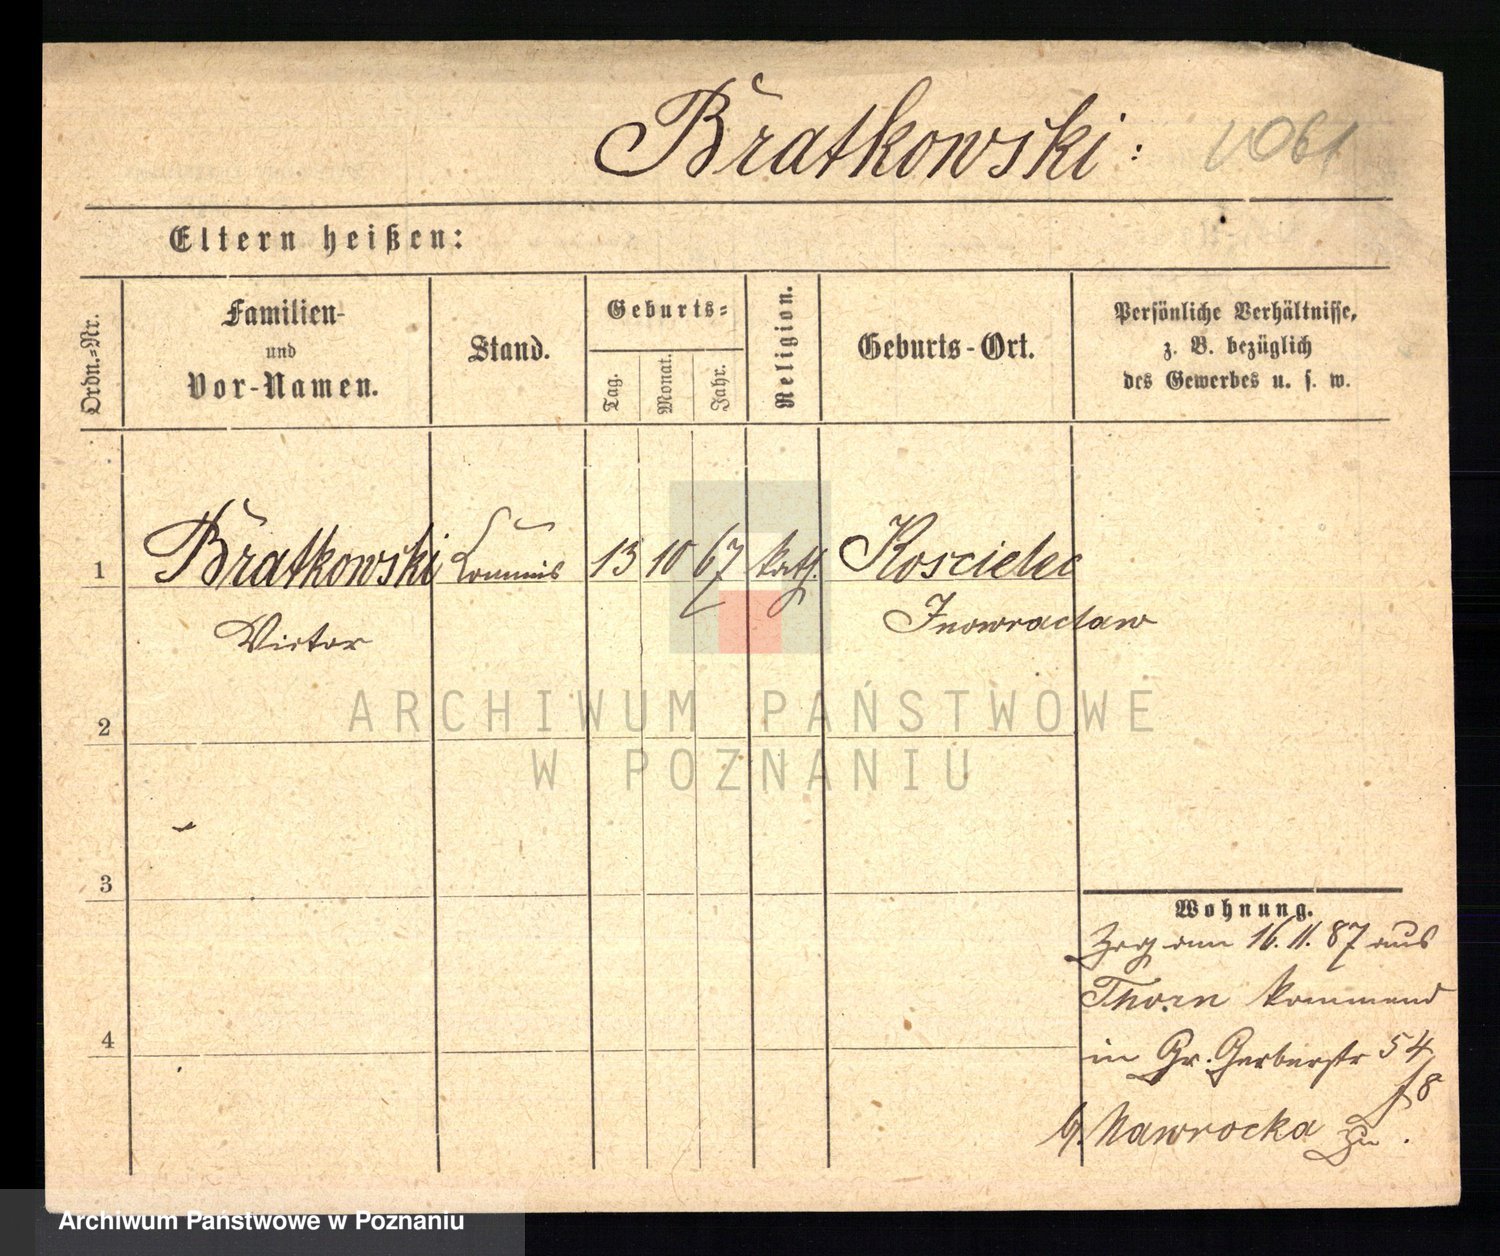 Bratkowski:
Eltern heißen:
Ordn.=Nr.
Familien-
und
Vor-Namen.
Stand.
Geburts=
Tag.
Monat.
Jahr.
Religion.
Geburts-Ort.
Persönliche Verhältnisse,
z. B. bezüglich
des Gewerbes u. s. w.
1 Bratkowski Commis 13 10 67 kath. Koscielec
Victor Inowraclaw
ARCHIWUM PAŃSTWOWE
W POZNANIU
2
3
4
Wohnung.
Zzg am 16. 11. 87 aus
Thorn kommend
in Gr. Gerberstr 54
b. Nawrocka zu.
Archiwum Państwowe w Poznaniu